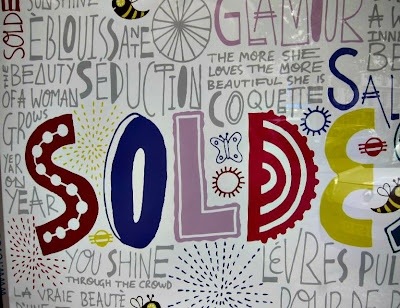 SUNSHINE
SOLDE
ÉBLOUISSANTE
GLAMOUR
A W
THE
BEAUTY
OF A WOMAN
GROWS
YEAR
ON
YEAR
SÉDUCTION
THE MORE SHE
LOVES THE MORE
BEAUTIFUL SHE IS
COQUETTE
SAL
SOLDE
YOU SHINE
THROUGH THE CROWD
LA VRAIE BEAUTÉ
LÈVRES PUL